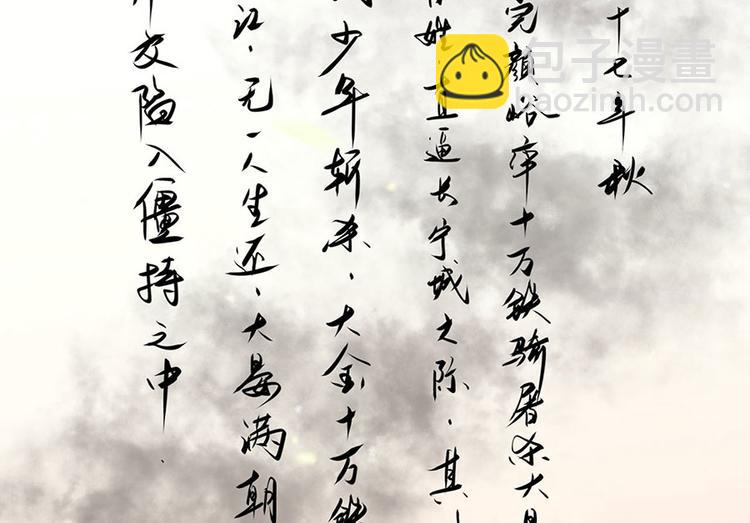 十七年秋
完颜峪率十万铁骑屠杀大
姓 直逼长宁城之际，其
少年斩杀，大金十万铁
江，无一人生还，大晏满朝
交陷入僵持之中
包子漫畫
baozimh.com